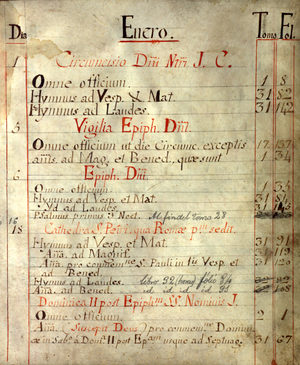 Dia Enero. Tomo. Fol.
1 Circuncisio Dñi Ntri J. C.
Omne officium. 1 8
Hymnus ad Vesp. & Mat. 31 82
Hymnus ad Laudes. 31 142
5 Vigilia Epiph. Dñi.
Omne officium ut die Circunc. exceptis 17 137
añis. ad Mag. et Bened. quæ sunt 1 34
6 Epiph. Dñi.
Omne officium. 1 35
Hymnus ad Vesp. et Mat. 31
Yd ad Laudes. 31
Psalmus primus 3 Noct. Al fin del tomo 28
18 Cathedra S. Petri qua Romæ pm sedit.
Hymnus ad Vesp. et Mat. 31 91
Aña. ad Magnif. 31 119
Aña. pro commemne S. Pauli in 1is Vesp. et 31 120
ad Bened.
Hymnus ad Laudes. Libro 32 folio
Aña. ad Bened. id id id
Dominica II post Epiphm SS. Nominis J.
Omne officium. 2 1
Aña. Suscepit Deus) pro commemne Dominicæ
in Sabto à Domca II post Epiphm usque ad Septuag. 31 67